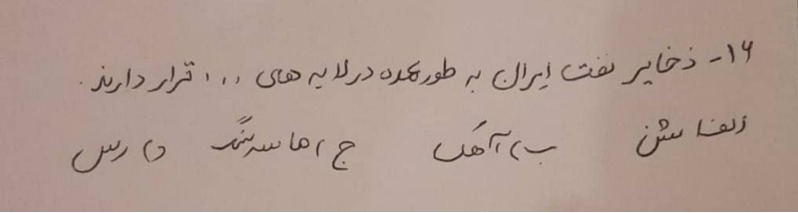 ۱۶- ذخایر نفت ایران به طور عمده در لایه های ... قرار دارند.
الف) شن ب) آهک ج) ماسه سنگ د) رس